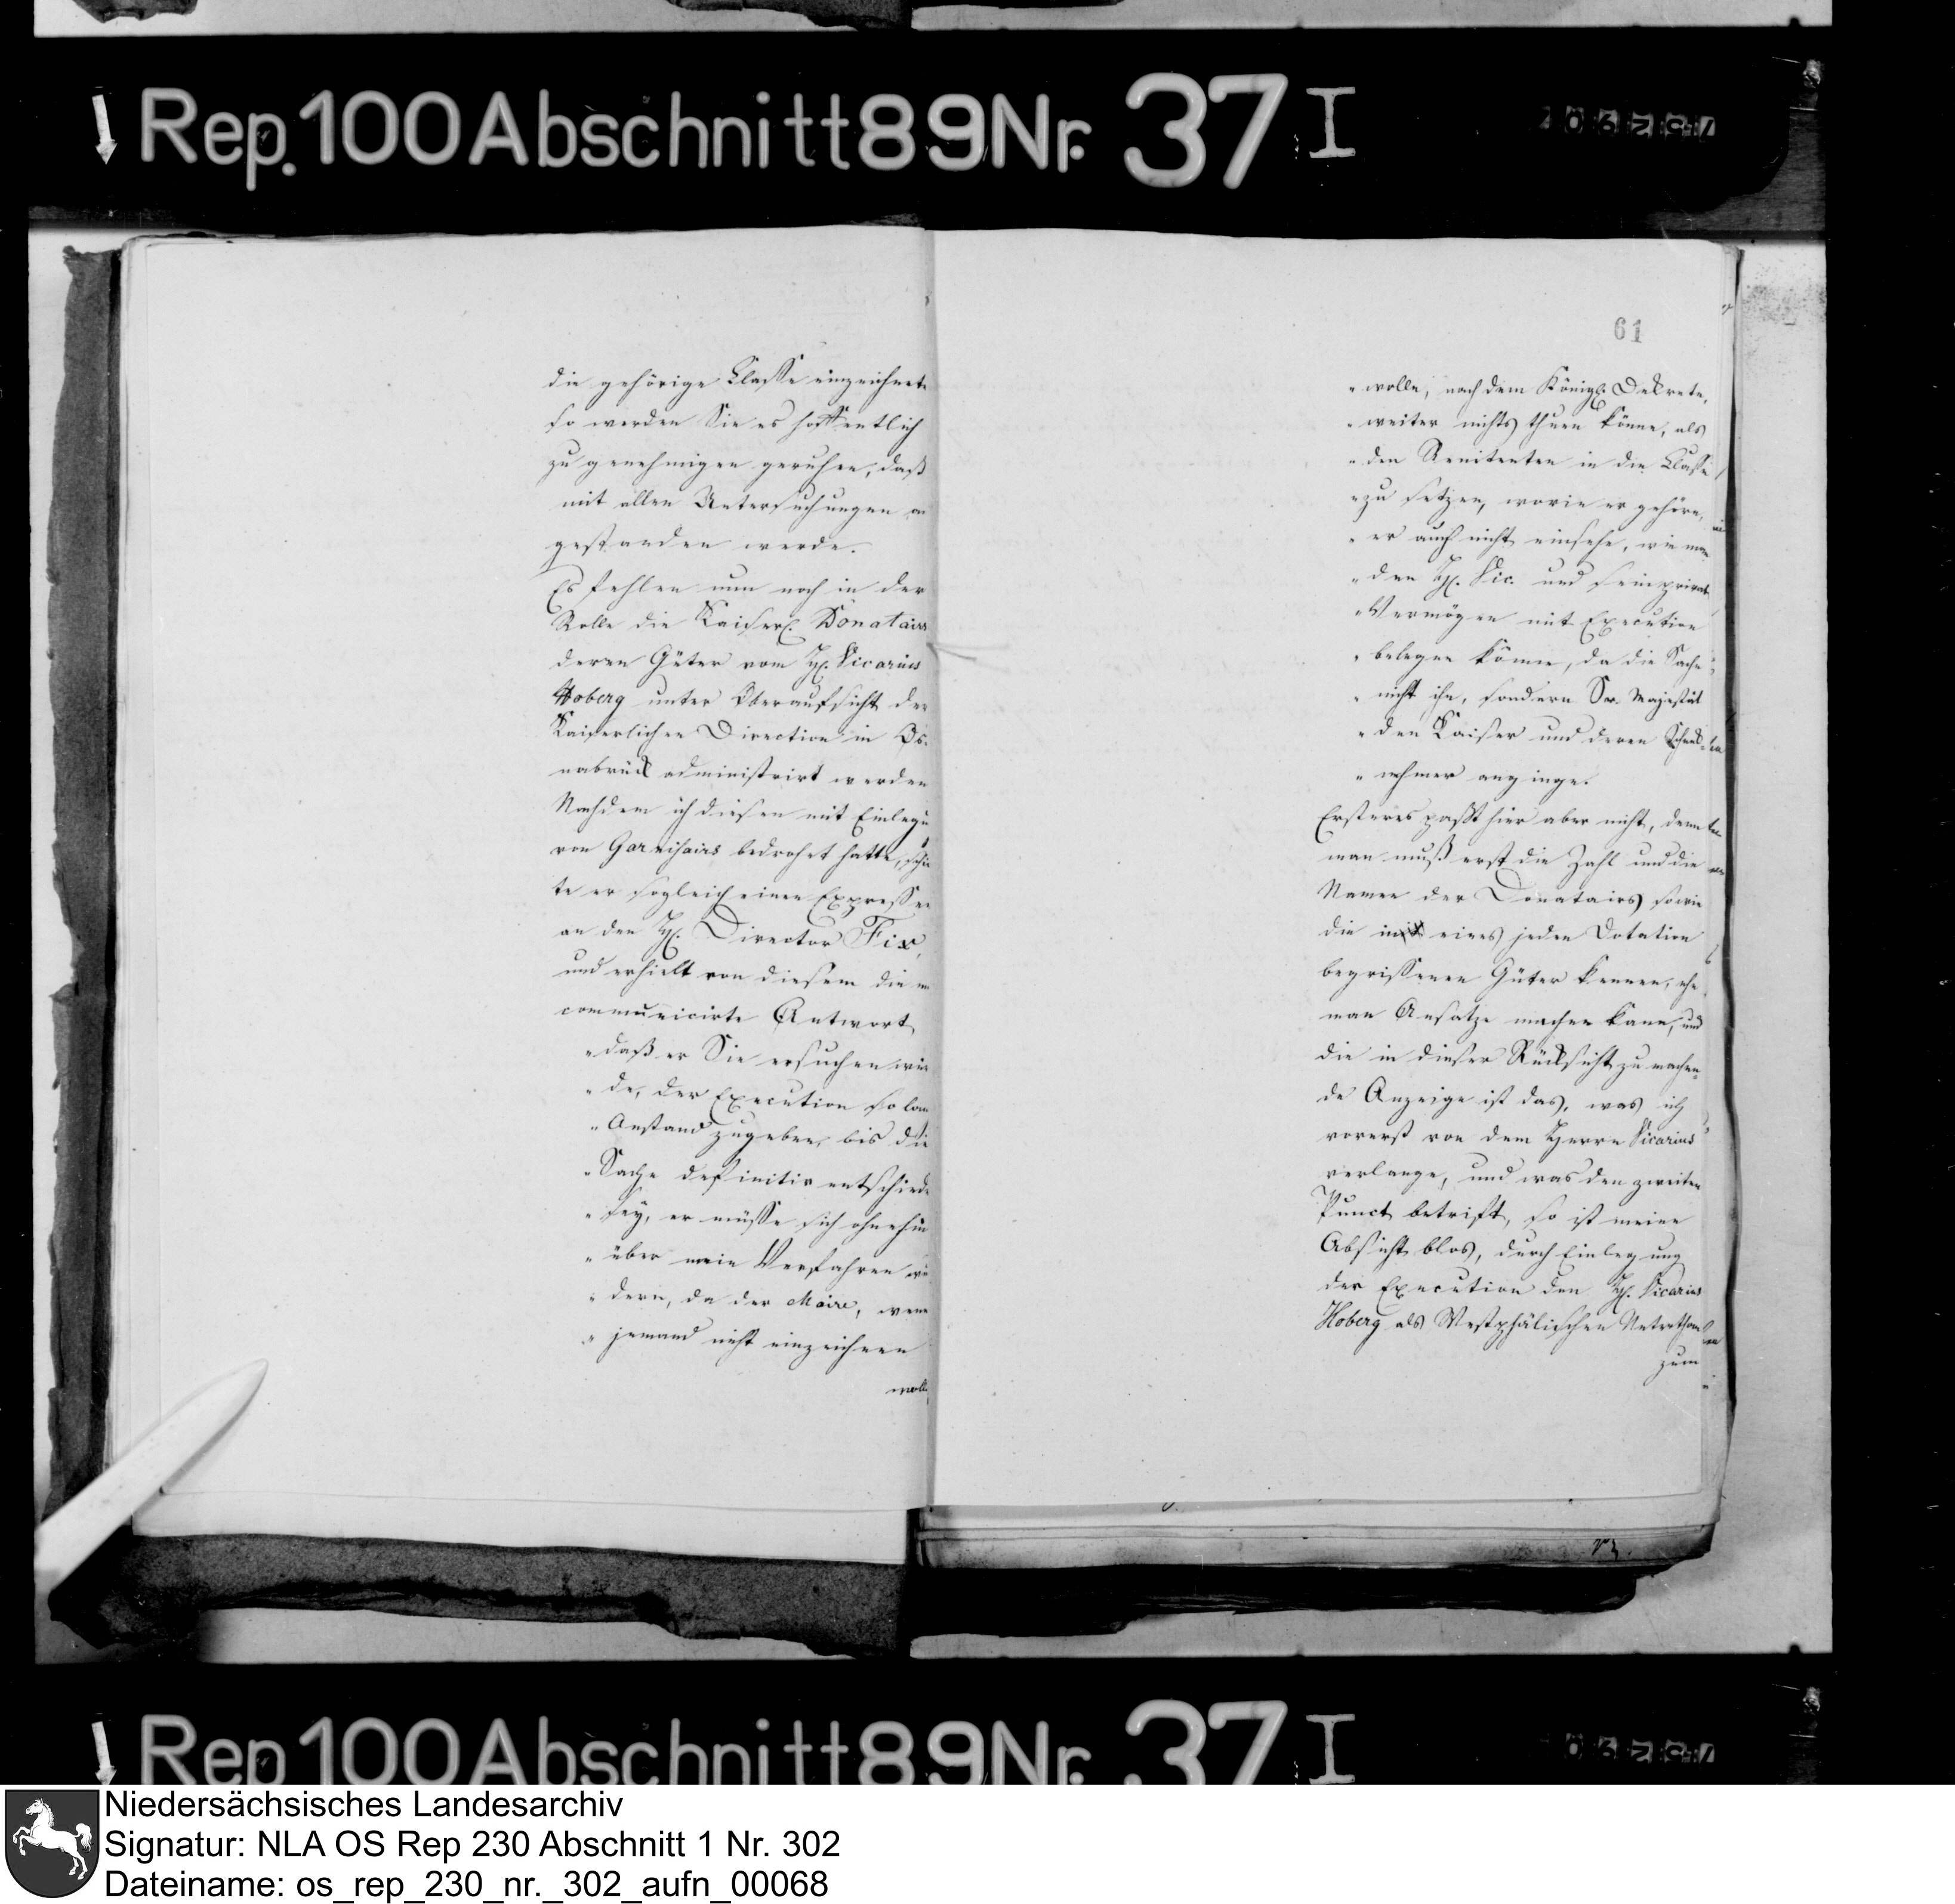 Rep. 100 Abschnitt 89 Nr. 37 I
die gehörige Classe einzeichnete
so werden Sie es hoffentlich
zu genehmigen geruhen, daß
mit allen Untersuchungen an
gestanden werde.
Es fehlen nun noch in der
Rolle die Kaiserl. Donatairs
deren Güter vom H. Vicarius
Hoberg unter Oberaufsicht der
Kaiserlichen Direction in Os-
nabrück administrirt werden
Nachdem ich diesen mit Einlegu
von Garnisairs bedrohet hatte, schic
te er sogleich einen Expressen
an den H. Director Fix,
und erhielt von diesem die
communicirte Antwort,
"daß er Sie ersuchen wür
"de, der Execution so lan
"Anstand zugeben, bis die
"Sache definitiv entschiede
"sey, er müsse sich ohnehin
"über mein Verfahren wu
"dern, da der Maire, wenn
"jemand nicht einzeichnen
wolle
61
"wolle, nach dem Königl. Dekrete,
"weiter nichts thuen könne, als
"den Renitenten in die Classe
"zu setzen, worin er gehöre,
"er auch nicht einsehe, wie man
"den H. Vic. und sein privat
"Vermögen mit Execution
"belegen könne, da die Sache
"nicht ihn, sondern Sr. Majestät
"den Kaiser und deren Schenk-
"nehmer anginge.
Ersteres paßt hier aber nicht, denn
man muß erst die Zahl und die
Namen der Donatairs sowie
die in eines jeden Dotation
begriffenen Güter kennen, ehe
man Ansätze machen kann, und
die in dieser Rücksicht zu machen-
de Anzeige ist das, was ich
vorerst von dem Herrn Vicarius
verlange, und was den zweiten
Punct betrift, so ist meine
Absicht blos, durch Einlegung
der Execution den H. Vicarius
Hoberg als Westphälischen Unterthan
zum
Rep 100 Abschnitt 89 Nr. 37 I
Niedersächsisches Landesarchiv
Signatur: NLA OS Rep 230 Abschnitt 1 Nr. 302
Dateiname: os_rep_230_nr._302_aufn_00068